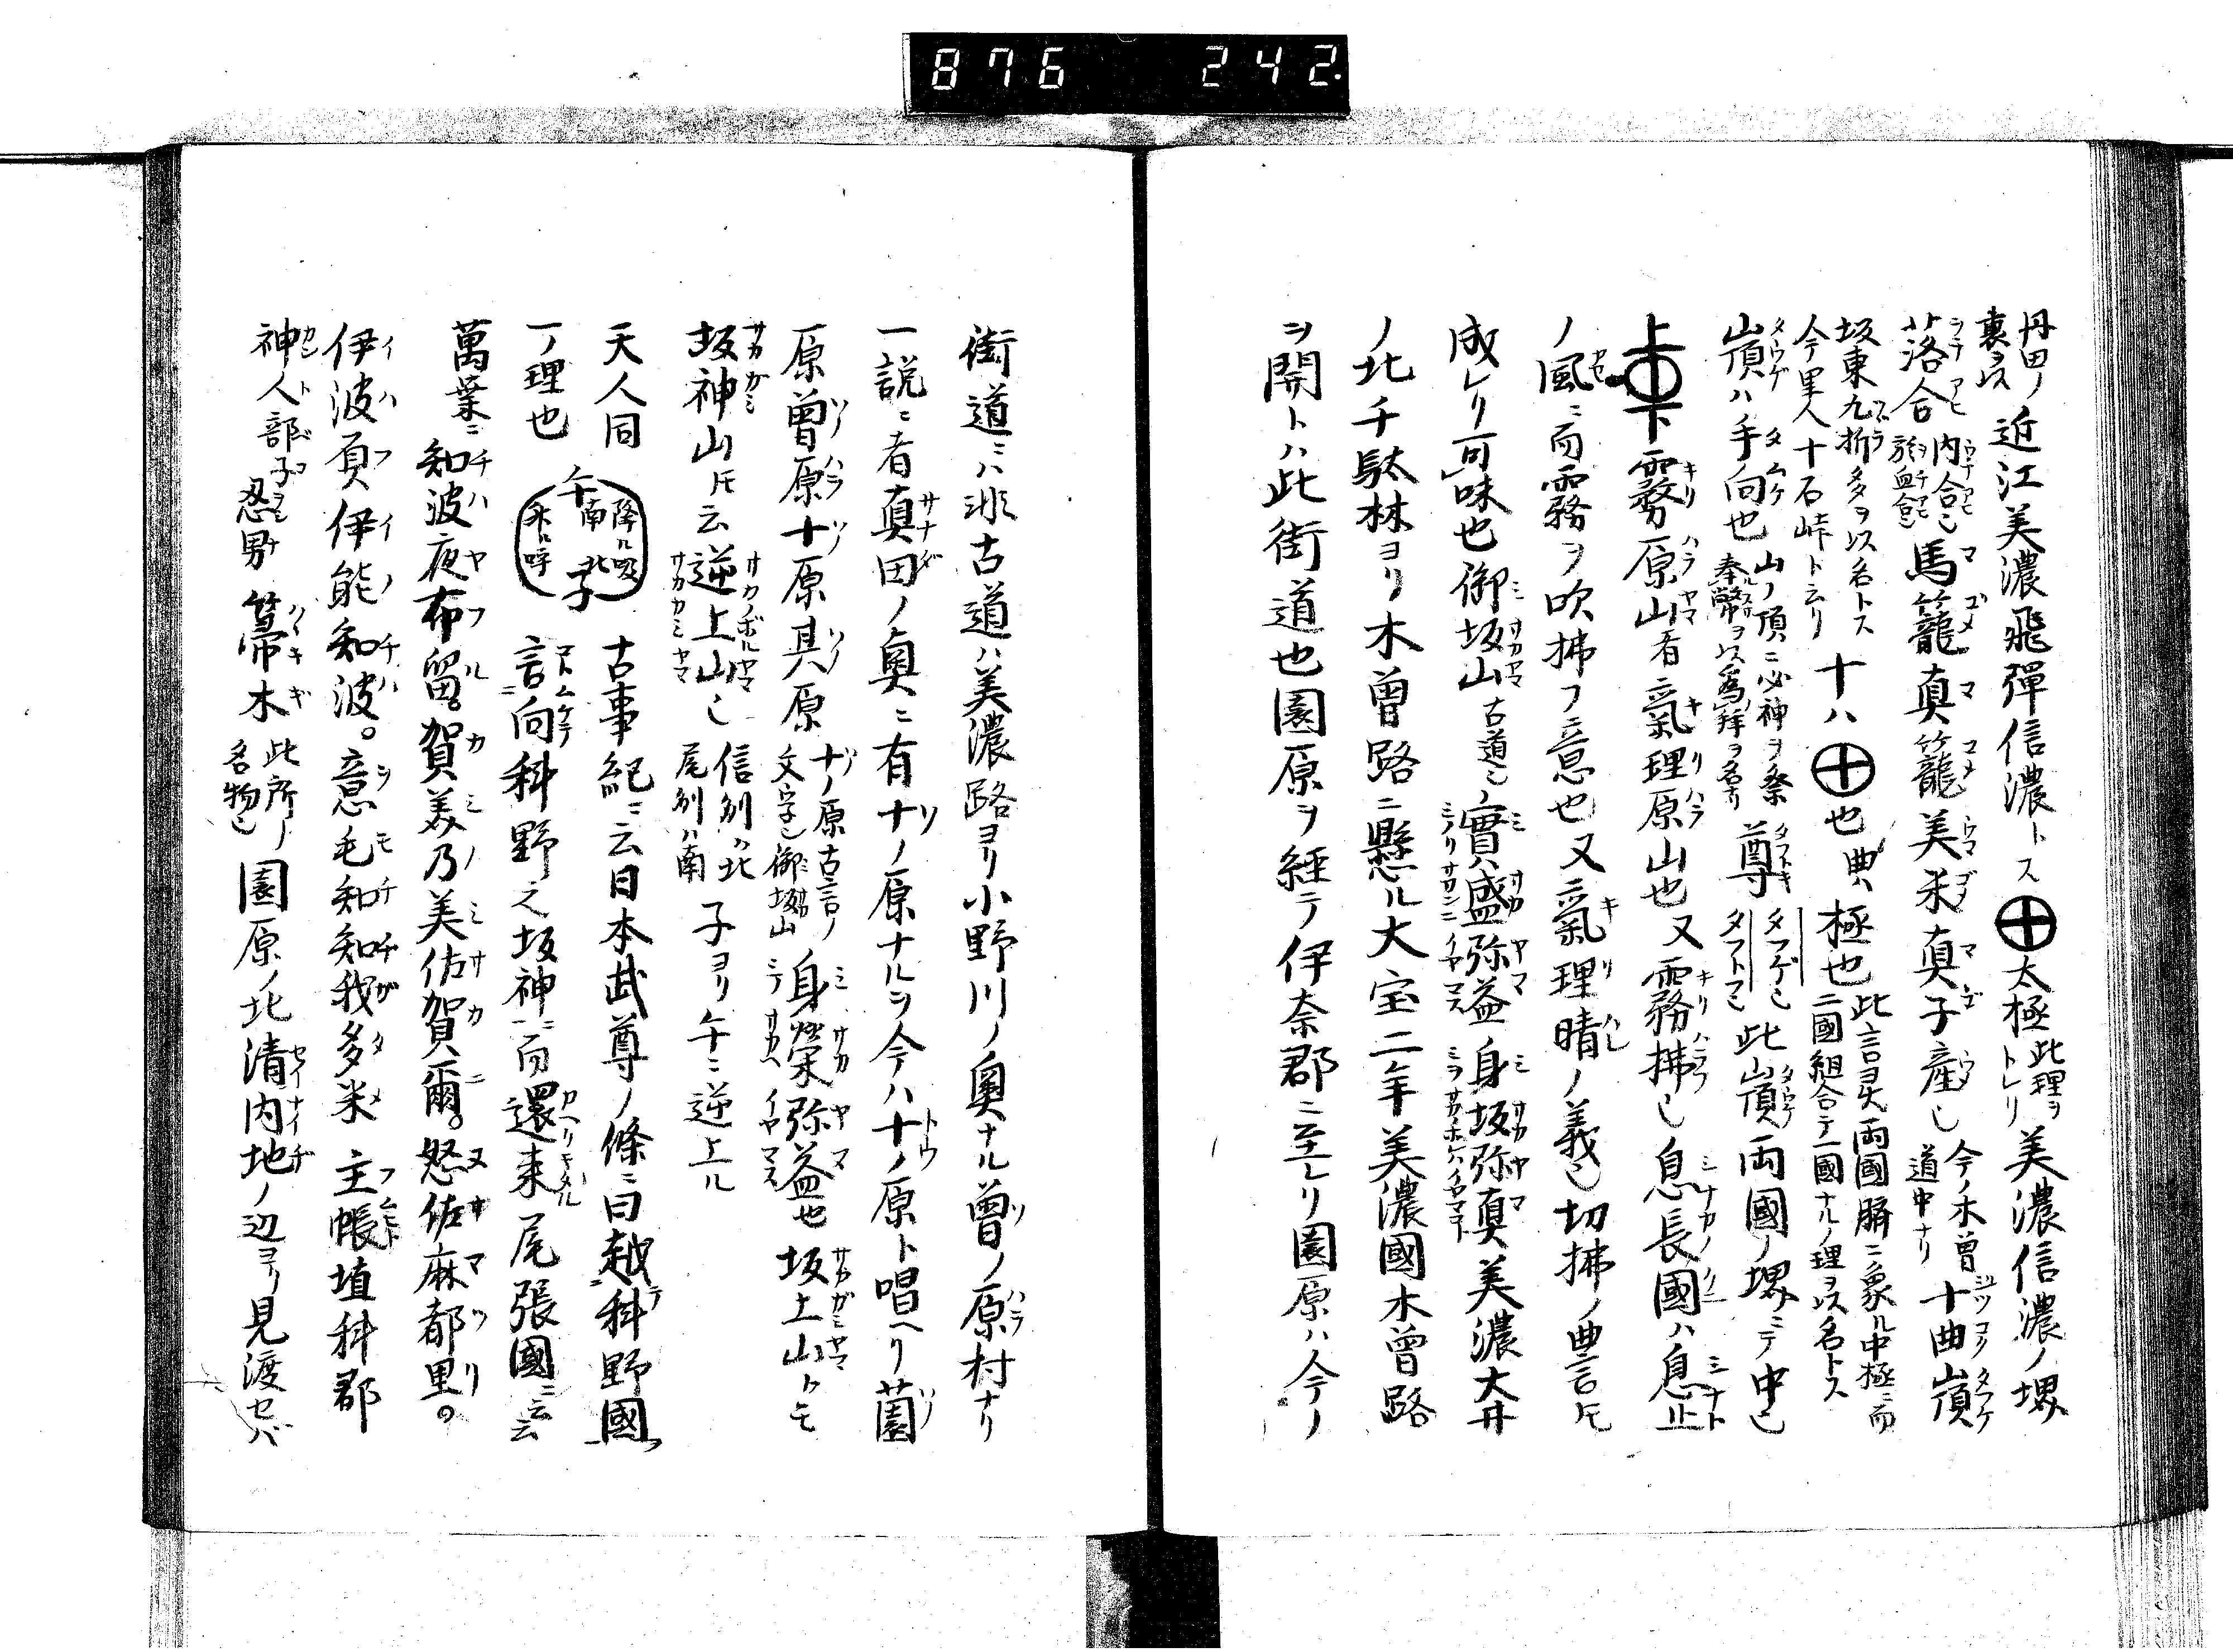 876 242
丹田ノ裏ヲ以近江美濃飛彈信濃トス⊕太極此理ヲトレリ美濃信濃ノ堺
落合内合也馬籠真籠美米真子産也今ノ木曽道中ナリ十曲嶺
坂東九折多ヲ以名トス今里人十石峠ト云リ十ハ⊕也曲ハ極也此言ヲ以両國臍ニ象ル中極ニ而二國組合テ一國ナルノ理ヲ以名トス
嶺ハ手向也山ノ頂ニ必神ヲ祭奉幣ヲ以為拜ヲ名ナリ尊タフゲ也タフトフ也此嶺両國ノ堺ニテ中也
上下霧原山者氣理原山也又霧拂也息長國ハ息止
ノ風ニ而霧ヲ吹拂フ意也又氣理晴ノ義也切拂ノ曲言トモ
成レリ可味也御坂山古道也實盛弥益身坂弥真美濃大井
ノ北千駄林ヨリ木曽路ニ懸ル大宝二年美濃國木曽路
ヲ開トハ此街道也園原ヲ経テ伊奈郡ニ至レリ園原ハ今ノ
街道ニハ非古道ハ美濃路ヨリ小野川ノ奥ナル曽ノ原村ナリ
一説ニ者真田ノ奥ニ有ナノ原ナルヲ今ハ十ノ原ト唱ヘリ薗
原曽原十原其原十ノ原古言ノ文字也御坂山身榮弥益也坂上山トモ
坂神山トモ云逆上山也信刕ハ北尾刕ハ南子ヨリ午ニ逆上ル
天人同一ノ理也午南降ル吸子北升ル呼古事紀ニ云日本武尊ノ條ニ曰越科野國
言向科野之坂神ニ而還来尾張國ニ云云
萬葉ニ知波夜布留。賀美乃美佐賀爾。怒佐麻都里。
伊波負伊能知波。意毛知知我多米主帳埴科郡
神人部子忍男箒木此所ノ名物也園原ノ北清内地ノ辺ヨリ見渡セバ